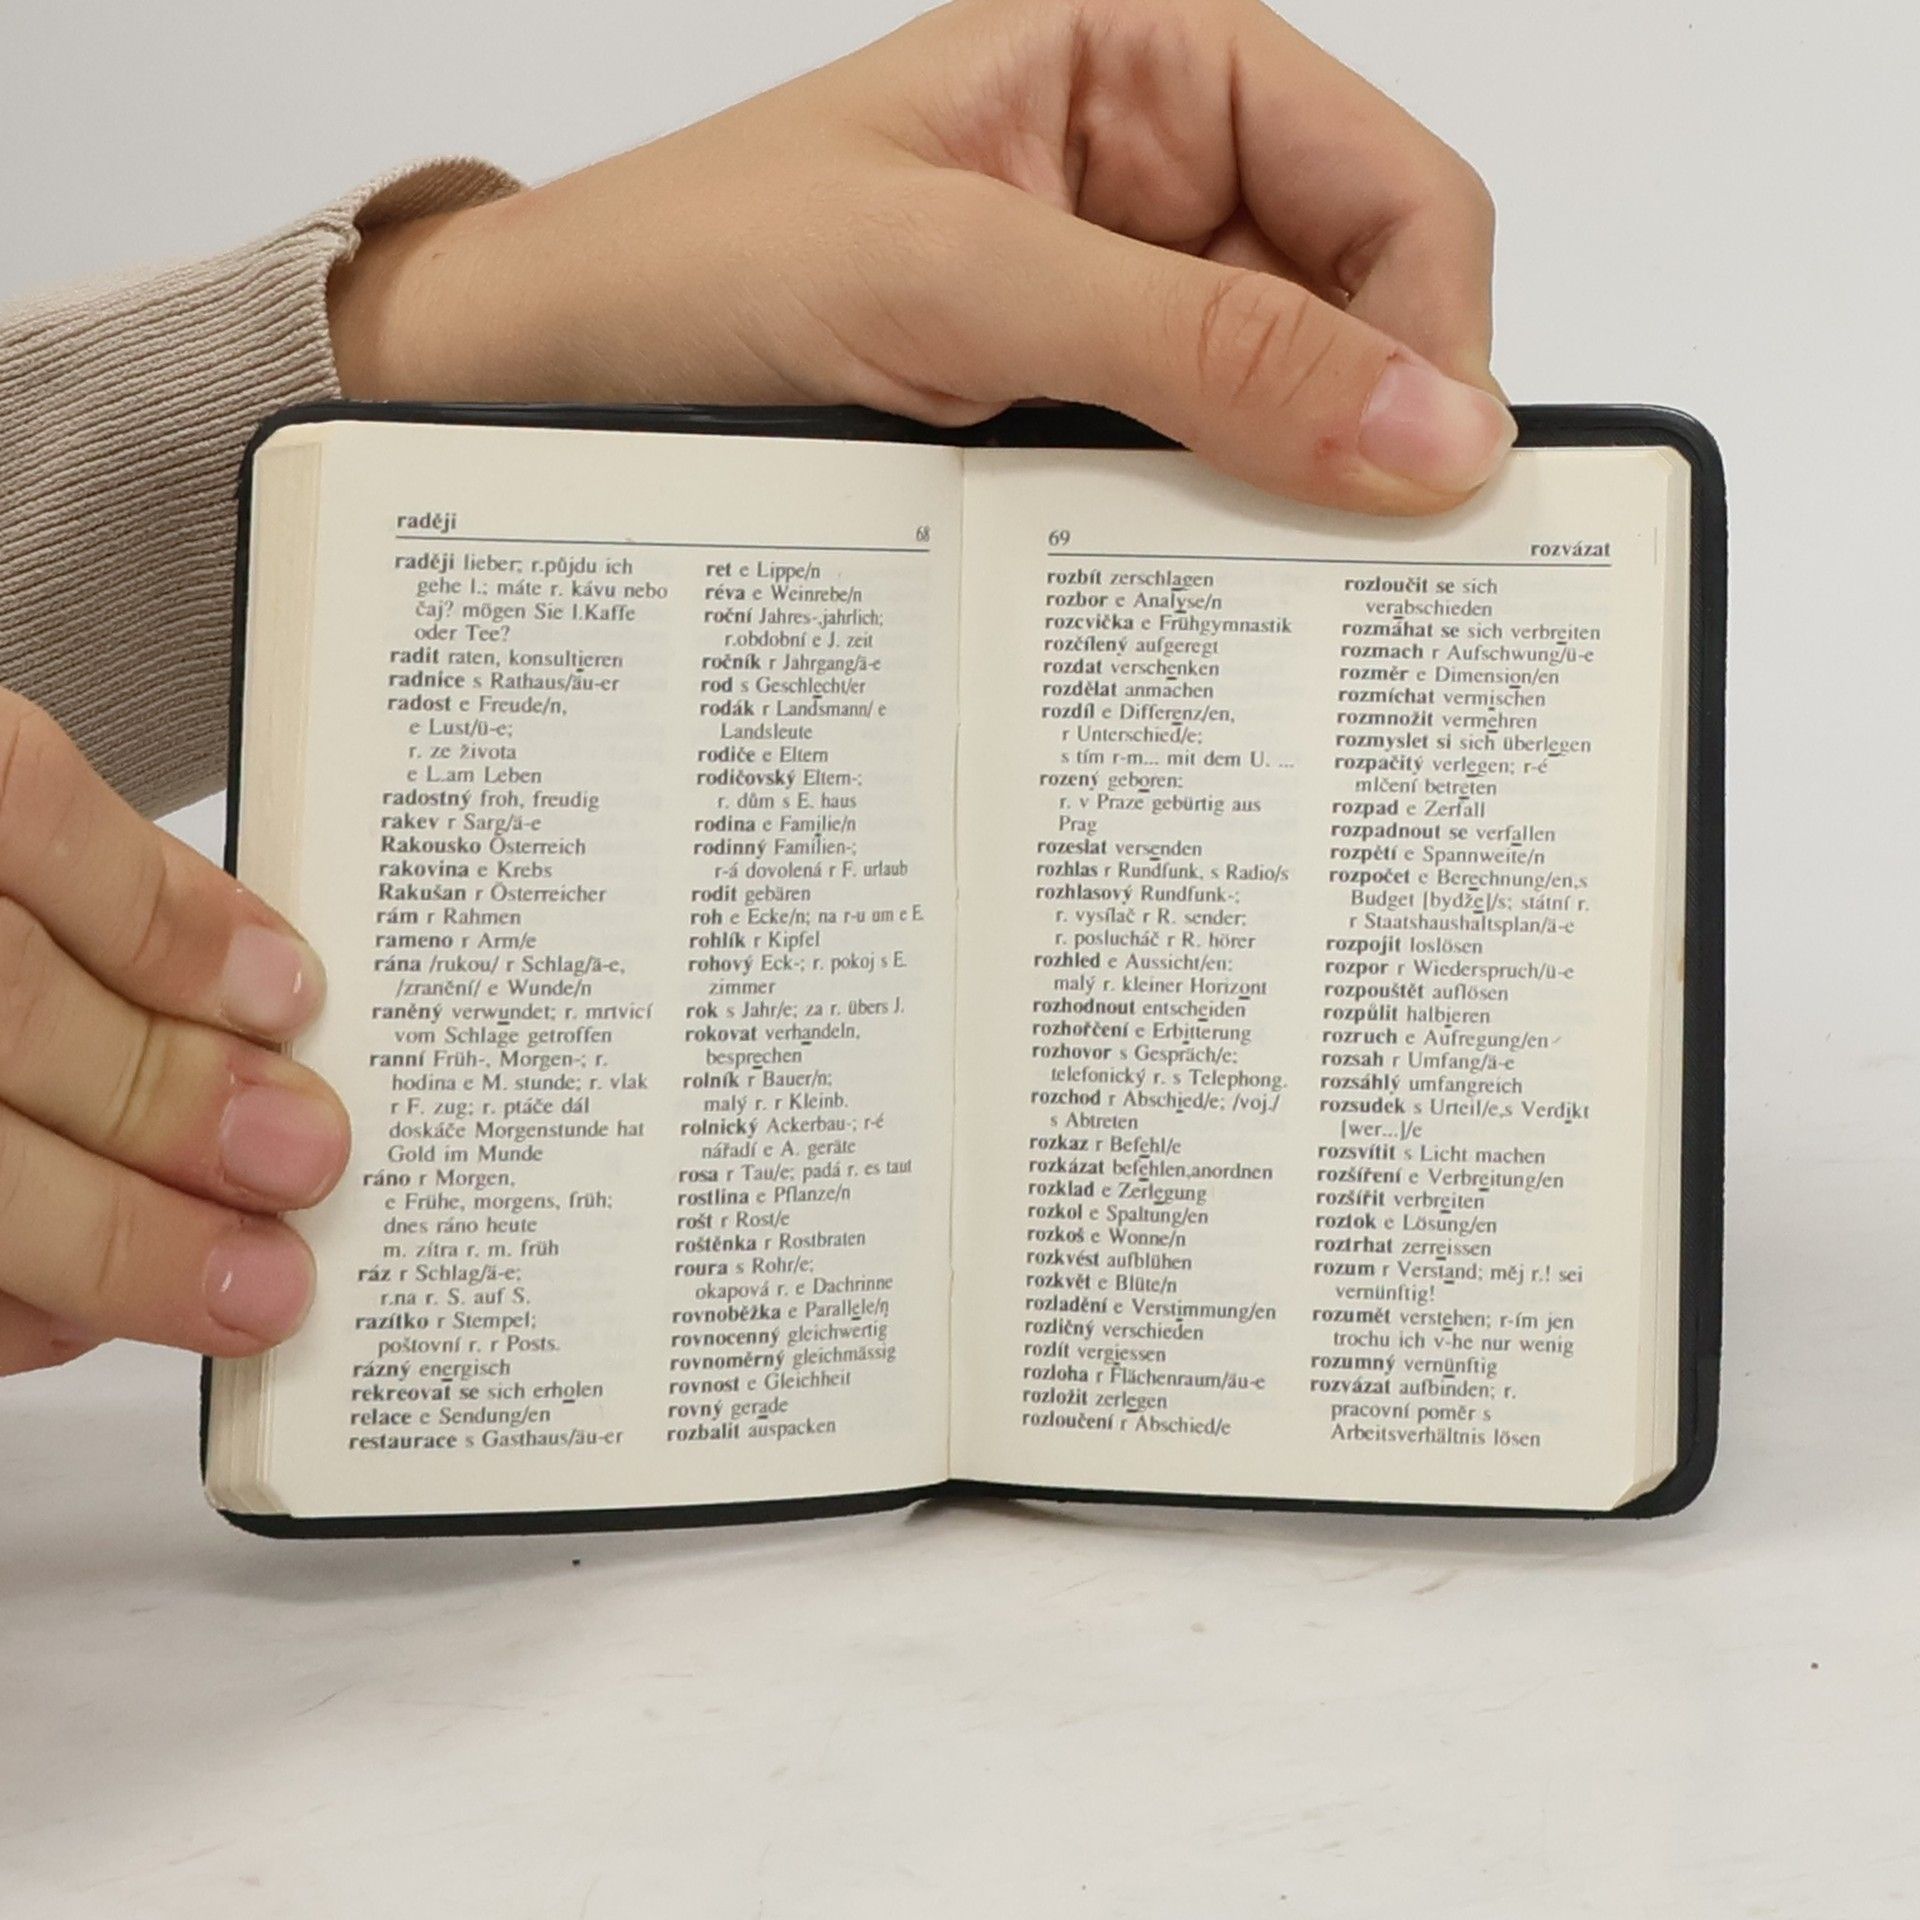 raději
68
raději lieber; r.půjdu ich
gehe l.; máte r. kávu nebo
čaj? mögen Sie l.Kaffe
oder Tee?
radit raten, konsultieren
radnice s Rathaus/äu-er
radost e Freude/n,
e Lust/ü-e;
r. ze života
e L.am Leben
radostný froh, freudig
rakev r Sarg/ä-e
Rakousko Österreich
rakovina e Krebs
Rakušan r Österreicher
rám r Rahmen
rameno r Arm/e
rána /rukou/ r Schlag/ä-e,
/zranění/ e Wunde/n
raněný verwundet; r. mrtvicí
vom Schlage getroffen
ranní Früh-, Morgen-; r.
hodina e M. stunde; r. vlak
r F. zug; r. ptáče dál
doskáče Morgenstunde hat
Gold im Munde
ráno r Morgen,
e Frühe, morgens, früh;
dnes ráno heute
m. zítra r. m. früh
ráz r Schlag/ä-e;
r.na r. S. auf S.
razítko r Stempel;
poštovní r. r Posts.
rázný energisch
rekreovat se sich erholen
relace e Sendung/en
restaurace s Gasthaus/äu-er
ret e Lippe/n
réva e Weinrebe/n
roční Jahres-,jahrlich;
r.obdobní e J. zeit
ročník r Jahrgang/ä-e
rod s Geschlecht/er
rodák r Landsmann/ e
Landsleute
rodiče e Eltern
rodičovský Eltern-;
r. dům s E. haus
rodina e Familie/n
rodinný Familien-;
r-á dovolená r F. urlaub
rodit gebären
roh e Ecke/n; na r-u um e E.
rohlík r Kipfel
rohový Eck-; r. pokoj s E.
zimmer
rok s Jahr/e; za r. übers J.
rokovat verhandeln,
besprechen
rolník r Bauer/n;
malý r. r Kleinb.
rolnický Ackerbau-; r-é
nářadí e A. geräte
rosa r Tau/e; padá r. es taut
rostlina e Pflanze/n
rošt r Rost/e
roštěnka r Rostbraten
roura s Rohr/e;
okapová r. e Dachrinne
rovnoběžka e Parallele/n
rovnocenný gleichwertig
rovnoměrný gleichmässig
rovnost e Gleichheit
rovný gerade
rozbalit auspacken
69
rozvázat
rozbít zerschlagen
rozbor e Analyse/n
rozcvička e Frühgymnastik
rozčílený aufgeregt
rozdat verschenken
rozdělat anmachen
rozdíl e Differenz/en,
r Unterschied/e;
s tím r-m... mit dem U. ...
rozený geboren;
r. v Praze gebürtig aus
Prag
rozeslat versenden
rozhlas r Rundfunk, s Radio/s
rozhlasový Rundfunk-;
r. vysílač r R. sender;
r. posluchač r R. hörer
rozhled e Aussicht/en;
malý r. kleiner Horizont
rozhodnout entscheiden
rozhořčení e Erbitterung
rozhovor s Gespräch/e;
telefonický r. s Telephong.
rozchod r Abschied/e; /voj./
s Abtreten
rozkaz r Befehl/e
rozkázat befehlen,anordnen
rozklad e Zerlegung
rozkol e Spaltung/en
rozkoš e Wonne/n
rozkvést aufblühen
rozkvět e Blüte/n
rozladění e Verstimmung/en
rozličný verschieden
rozlít vergiessen
rozloha r Flächenraum/äu-e
rozložit zerlegen
rozloučení r Abschied/e
rozloučit se sich
verabschieden
rozmáhat se sich verbreiten
rozmach r Aufschwung/ü-e
rozměr e Dimension/en
rozmíchat vermischen
rozmnožit vermehren
rozmyslet si sich überlegen
rozpačitý verlegen; r-é
mlčení betreten
rozpad e Zerfall
rozpadnout se verfallen
rozpětí e Spannweite/n
rozpočet e Berechnung/en,s
Budget [bydže]/s; státní r.
r Staatshaushaltsplan/ä-e
rozpojit loslösen
rozpor r Wiederspruch/ü-e
rozpouštět auflösen
rozpůlit halbieren
rozruch e Aufregung/en
rozsah r Umfang/ä-e
rozsáhlý umfangreich
rozsudek s Urteil/e,s Verdikt
[wer...]/e
rozsvítit s Licht machen
rozšíření e Verbreitung/en
rozšířit verbreiten
roztok e Lösung/en
roztrhat zerreissen
rozum r Verstand; měj r.! sei
vernünftig!
rozumět verstehen; r-ím jen
trochu ich v-he nur wenig
rozumný vernünftig
rozvázat aufbinden; r.
pracovní poměr s
Arbeitsverhältnis lösen